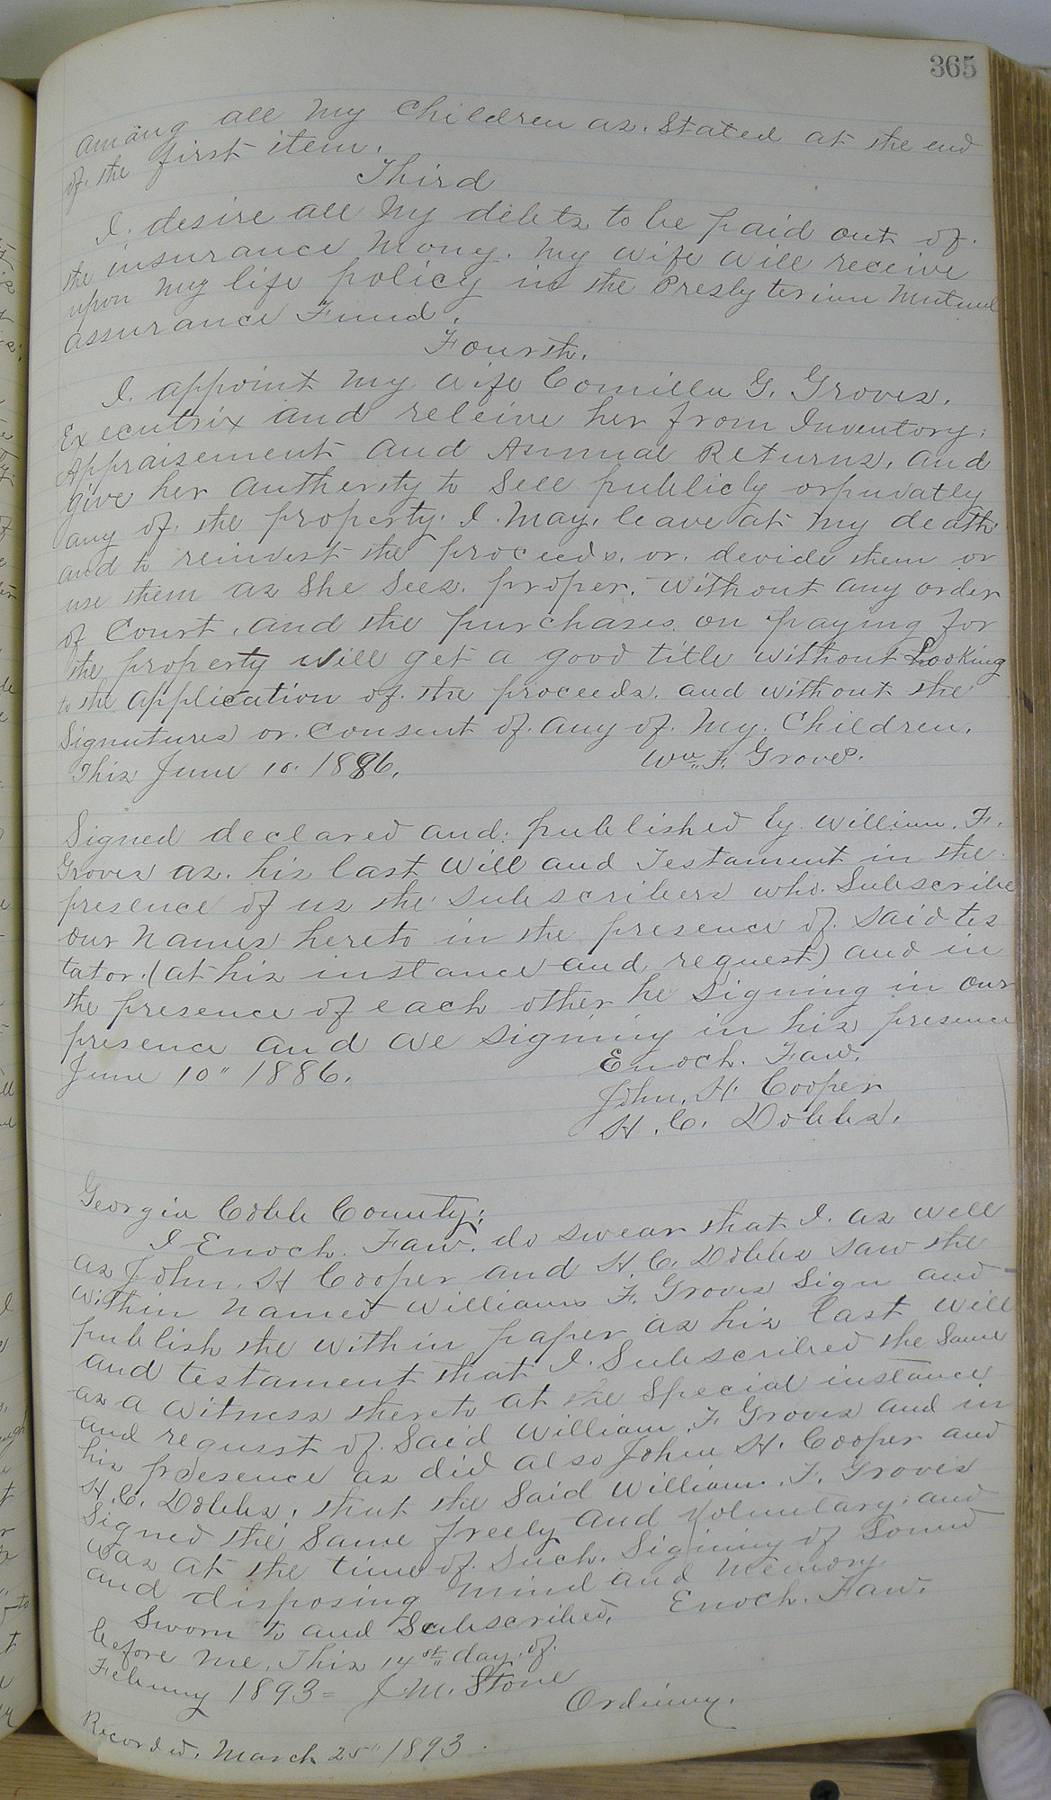 365
among all my children as. Stated at the end
of. the first item.
Third
I. desire all My debts to be paid out of.
the insurance Mony. My wife will receive
upon my life policy in the Presbyterian Mutual
assurance Fund.
Fourth.
I. appoint my wife Comilla G. Groves.
Executrix and releive her from Inventory;
Appraisement and Annual Returns, and
give her authority to Sell publicly or privatly
any of. the property. I. may. leave at my death
and to reinvest the proceeds. or. devide them or
use them as She Sees. proper. without any order
of Court. and the purchases. on paying for
the property will get a good title without Looking
to the application of. the proceeds. and without the
Signatures or. Consent of. any of. My. Children.
This June 10. 1886.
Wm. F. Groves.
Signed declared and. published by. William. F.
Groves as. his last Will and Testament in the
presence of us the Subscribers who. Subscribe
our Names hereto in the presence of. Said tes
tator. (at his instance and request) and in
the presence of each other he Signing in our
presence and we Signing in his presence
June 10" 1886.
Enoch. Faw.
John. H. Cooper
H. C. Dobbs.
Georgia Cobb County;
I Enoch. Faw. do swear that I. as well
as John. H Cooper and H. C. Dobbs saw the
within named Williams F. Groves Sign and
publish the within paper as his last will
and testament that I. Subscribed the Same
as a witness thereto at the Special instance
and request of. Said William. F Groves and in
his presence as did also John H. Cooper and
H. C. Dobbs. that the Said William. F. Groves
Signed the Same freely and Voluntary. and
was at the time of. Such. Signing of Sound
and disposing mind and memory
Enoch. Faw.
Sworn to and Subscribed.
before me. This 14st day. of.
Febuuy 1893= J. M. Stone
Ordinary.
Recorded. March 25" 1893.